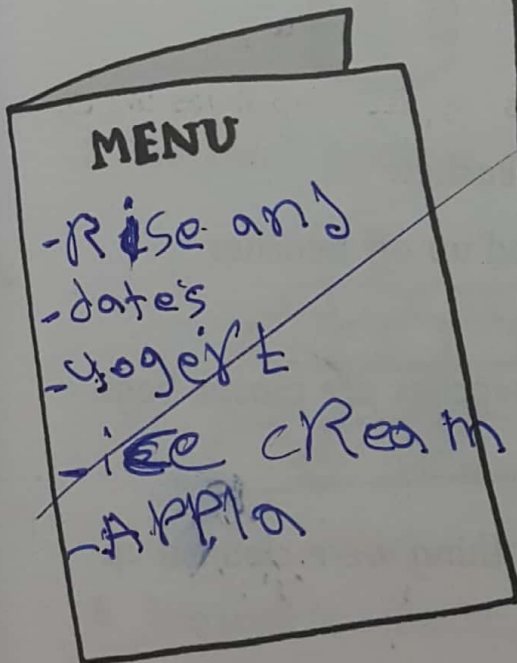 MENU
-Rise and
-date's
-yogert
-ice cReam
-APPla